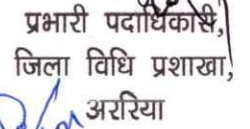 प्रभारी पदाधिकारी,
जिला विधि प्रशाखा,
अररिया